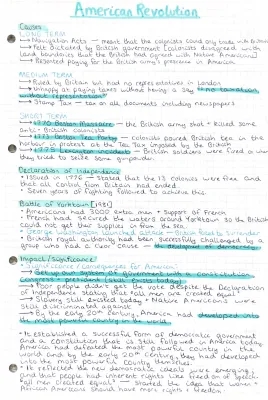 American Revolution
Causes
LONG TERM
→ Navigation Acts — meant that the colonists could only trade with Britain
→ Felt dictated by British government (colonists disagreed with
land boundaries that the British had agreed with Native Americans)
→ Resented paying for the British army's presence in America
MEDIUM TERM
→ Ruled by Britain but had no representatives in London
→ Unhappy at paying taxes without having a say "no taxation
without representation"
→ Stamp Tax — tax on all documents including newspapers
SHORT TERM
→ 1770: Boston Massacre — the British army shot + killed some
anti-British colonists
→ 1773: Boston Tea Party — colonists poured British tea in the
harbour in protest at the Tea Tax imposed by the British
→ 1775: Lexington incidents — British soldiers were fired on when
they tried to seize some gunpowder
Declaration of Independence
• Issued in 1776 — stated that the 13 colonies were free and
that all control from Britain had ended
• Seven years of fighting followed to achieve this.
Battle of Yorktown [1781]
• Americans had 3000 extra men + support of French
• French had secured the waters around Yorktown so the British
could not get their supplies in from the sea
• George Washington launched attack — British forced to surrender
• British royal authority had been successfully challenged by a
group who had a clear cause — the development of democracy
Impact/Significance
• Significant consequences for America:
→ Set up our system of government with a constitution
Congress + president (still exists today)
→ Poor people didn't get the vote despite the Declaration
of Independence stating that all men are created equal
→ Slavery still existed today + Native Americans were
still discriminated against
→ By the early 20th Century, America had developed into
the most powerful country in the world
• It established a successful form of democratic government
and a constitution that is still followed in America today
• America had defeated the most powerful country in the
world and by the early 20th Century they had developed
into the most powerful country themselves.
• It reflected the new democratic ideals were emerging
and that people had inherent rights like freedom of speech
• "all men created equal" — started the idea that women +
African Americans should have more rights + freedom